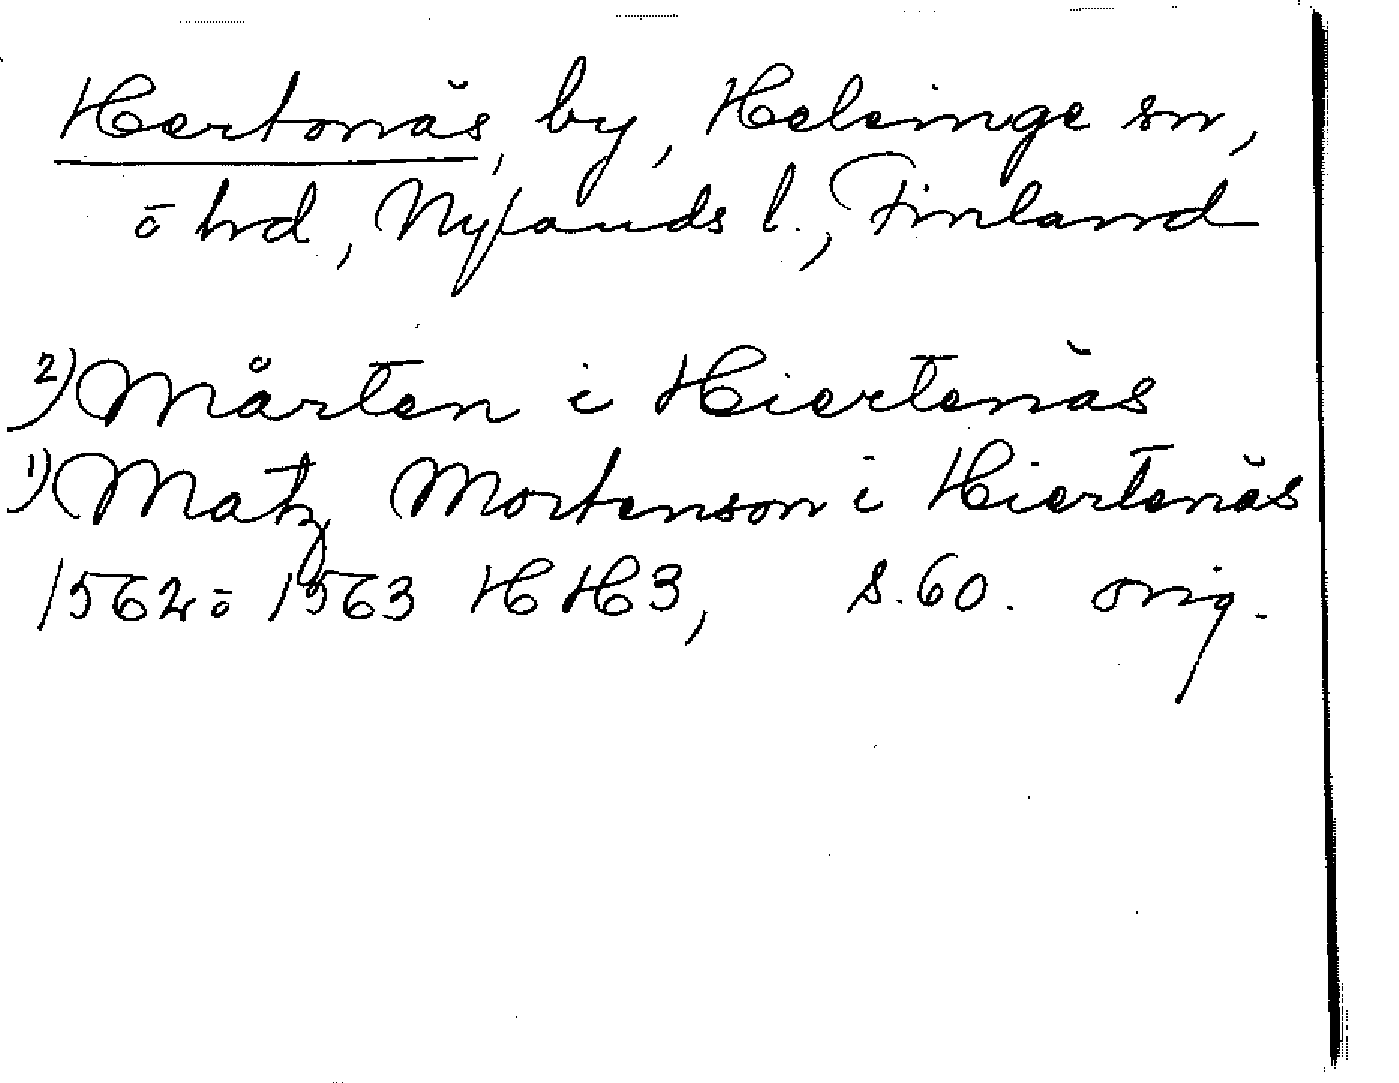 Hertonäs, by, Helsinge sn,
ö hrd, Nylands l., Finland
2) Mårten i Hiertenäs
1) Matz Mortenson i Hiertenäs
1562 ö 1563 HH3, s. 60. orig.